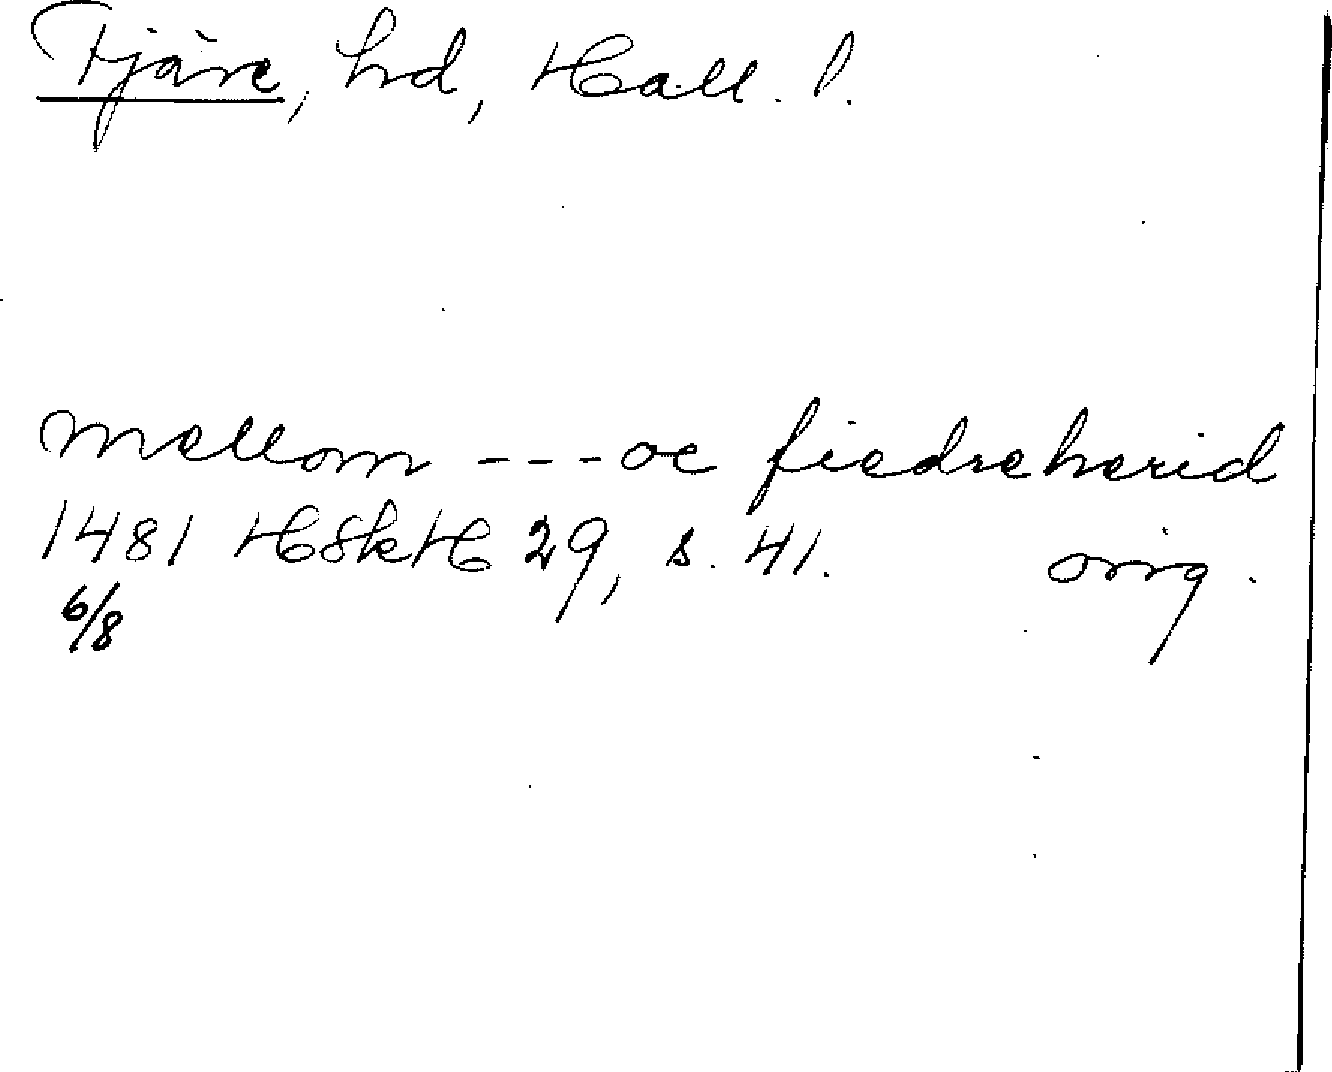 Fjäre, hd, Hall. l.
mellom --- oc fiedreherid
1481 HSkH 29, s. 41. orig.
6/8